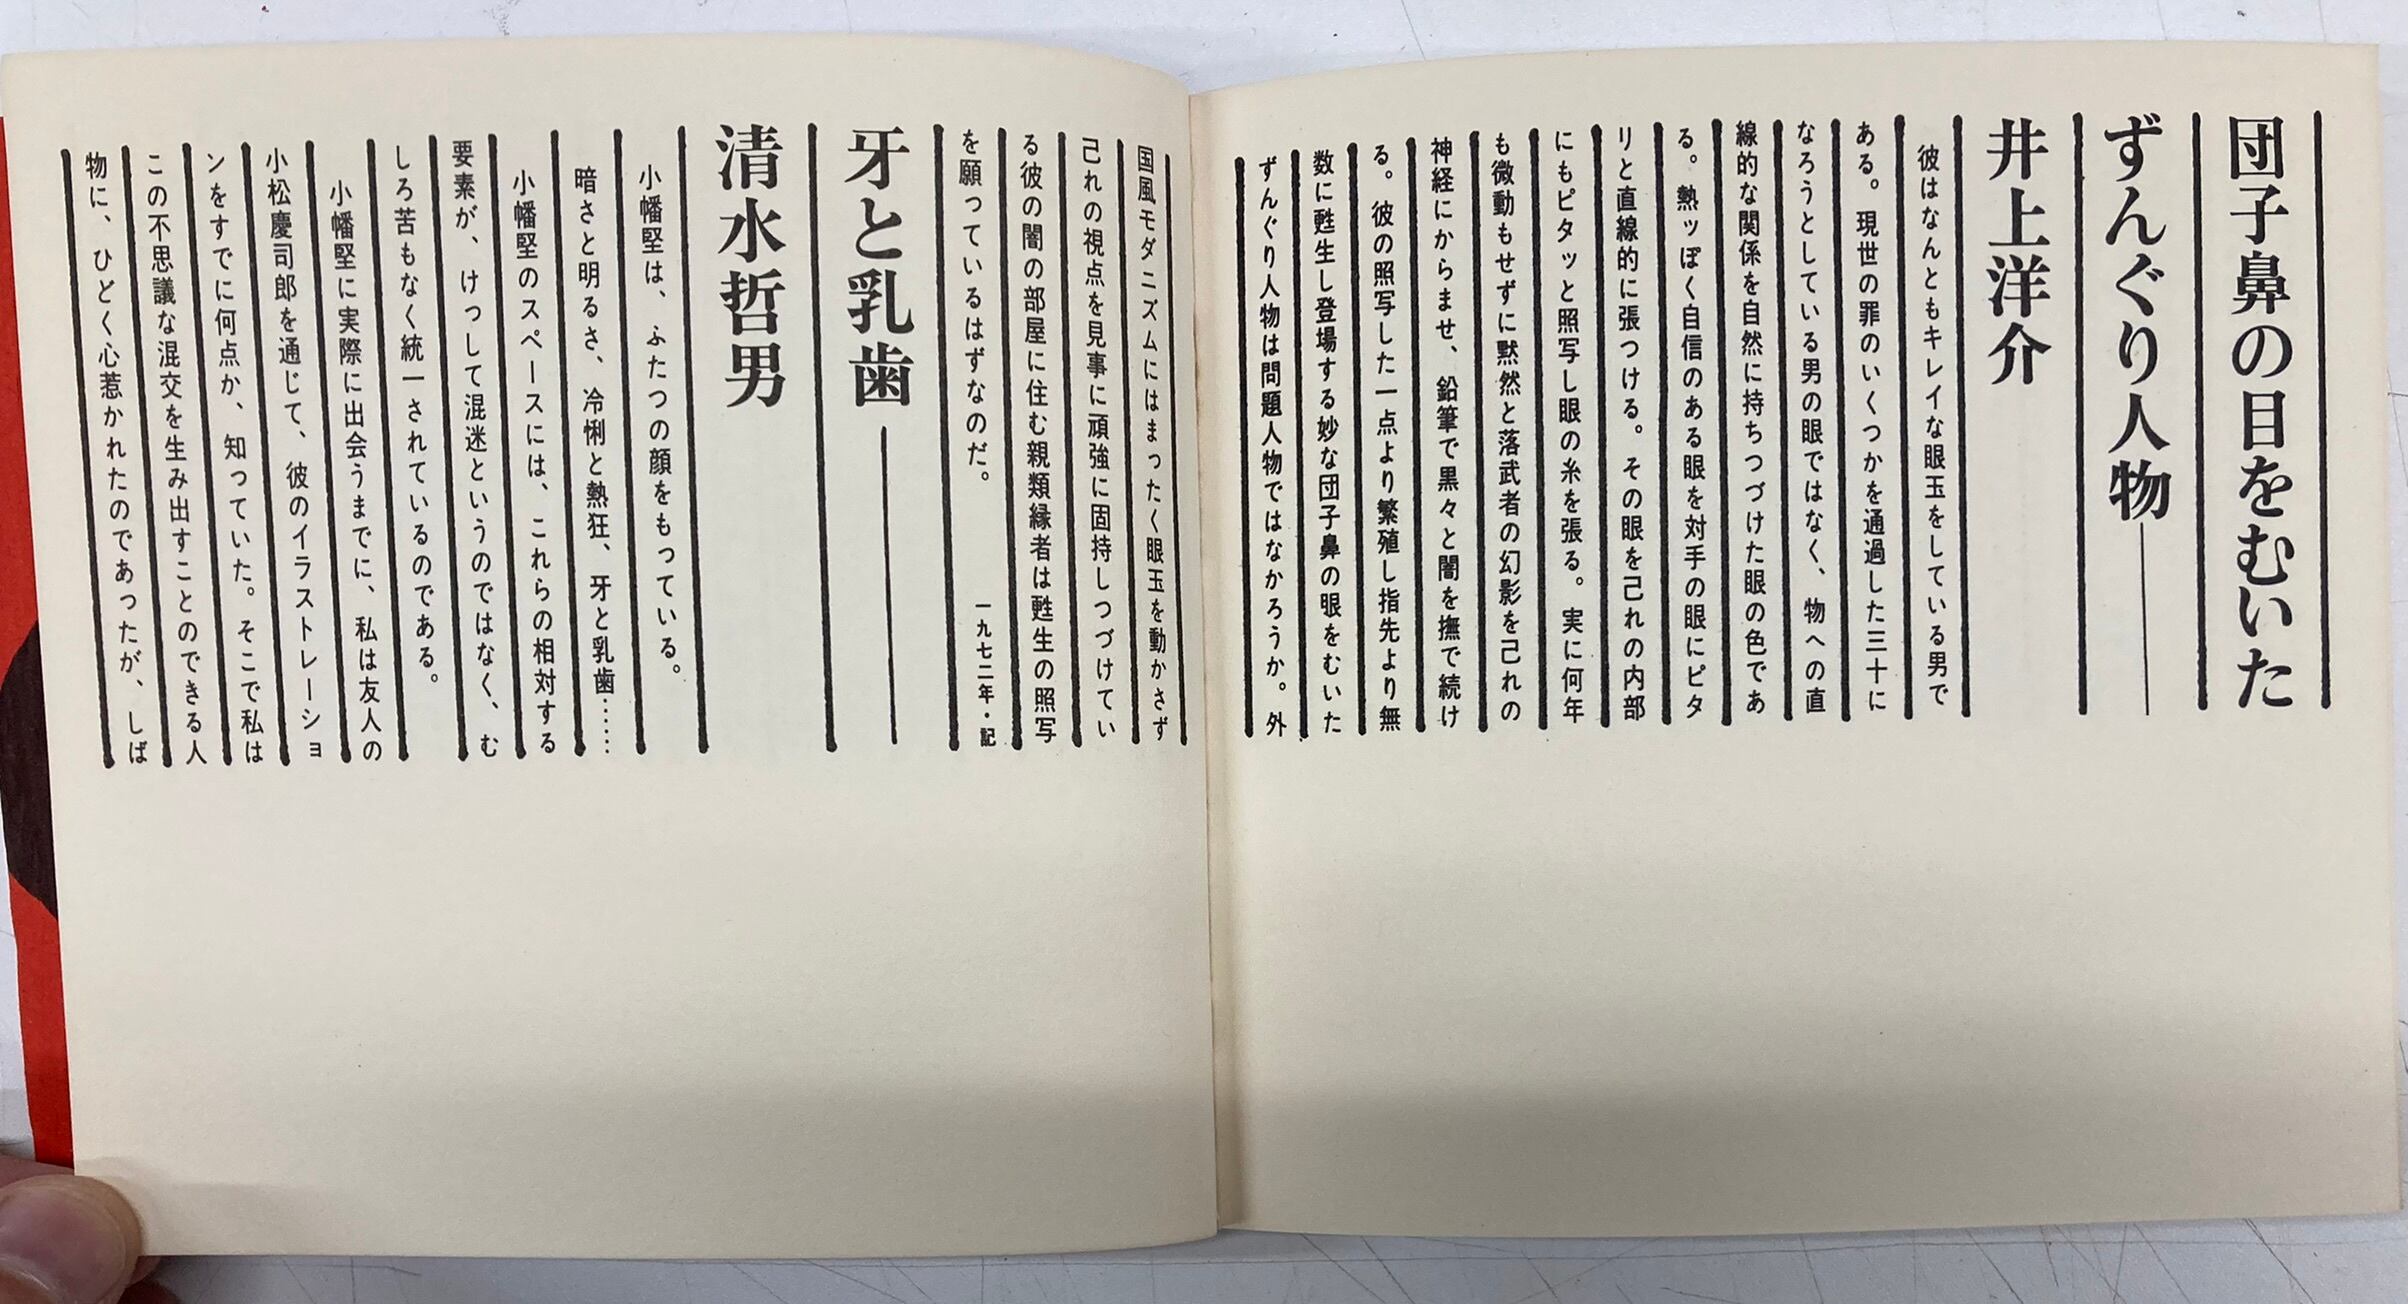 団子鼻の目をむいた
ずんぐり人物──
井上洋介
彼はなんともキレイな眼玉をしている男で
ある。現世の罪のいくつかを通過した三十に
なろうとしている男の眼ではなく、物への直
線的な関係を自然に持ちつづけた眼の色であ
る。熱ッぽく自信のある眼を対手の眼にピタ
リと直線的に張つける。その眼を己れの内部
にもピタッと照写し眼の糸を張る。実に何年
も微動もせずに黙然と落武者の幻影を己れの
神経にからませ、鉛筆で黒々と闇を撫で続け
る。彼の照写した一点より繁殖し指先より無
数に甦生し登場する妙な団子鼻の眼をむいた
ずんぐり人物は問題人物ではなかろうか。外
国風モダニズムにはまったく眼玉を動かさず
己れの視点を見事に頑強に固持しつづけてい
る彼の闇の部屋に住む親類縁者は甦生の照写
を願っているはずなのだ。
一九七二年・記
牙と乳歯──
清水哲男
小幡堅は、ふたつの顔をもっている。
暗さと明るさ、冷悧と熱狂、牙と乳歯……
小幡堅のスペースには、これらの相対する
要素が、けっして混迷というのではなく、む
しろ苦もなく統一されているのである。
小幡堅に実際に出会うまでに、私は友人の
小松慶司郎を通じて、彼のイラストレーショ
ンをすでに何点か、知っていた。そこで私は
この不思議な混交を生み出すことのできる人
物に、ひどく心惹かれたのであったが、しば